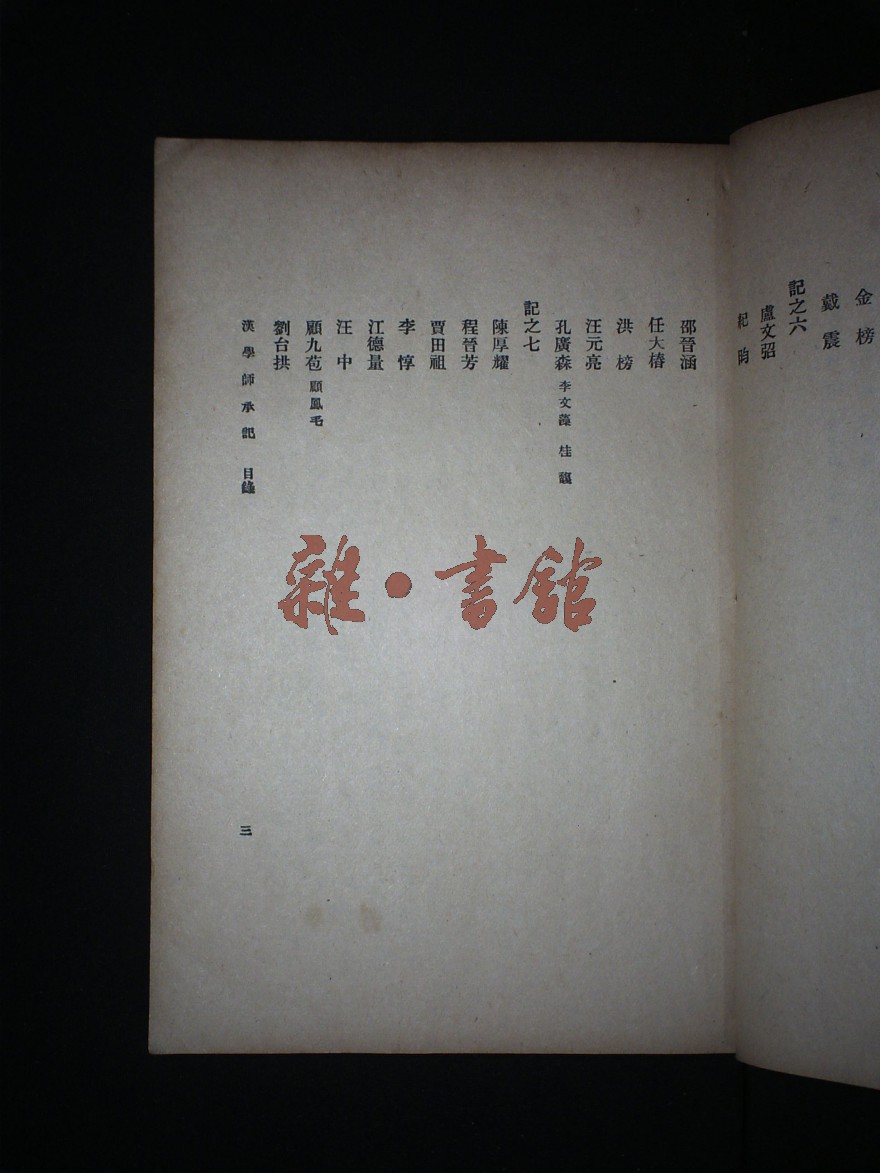 金榜
戴震
記之六
盧文弨
紀昀
邵晉涵
任大椿
洪榜
汪元亮
孔廣森 李文藻 桂馥
記之七
陳厚耀
程晉芳
賈田祖
李惇
江德量
汪中
顧九苞 顧鳳毛
劉台拱
漢學師承記 目錄
三
雜·書館